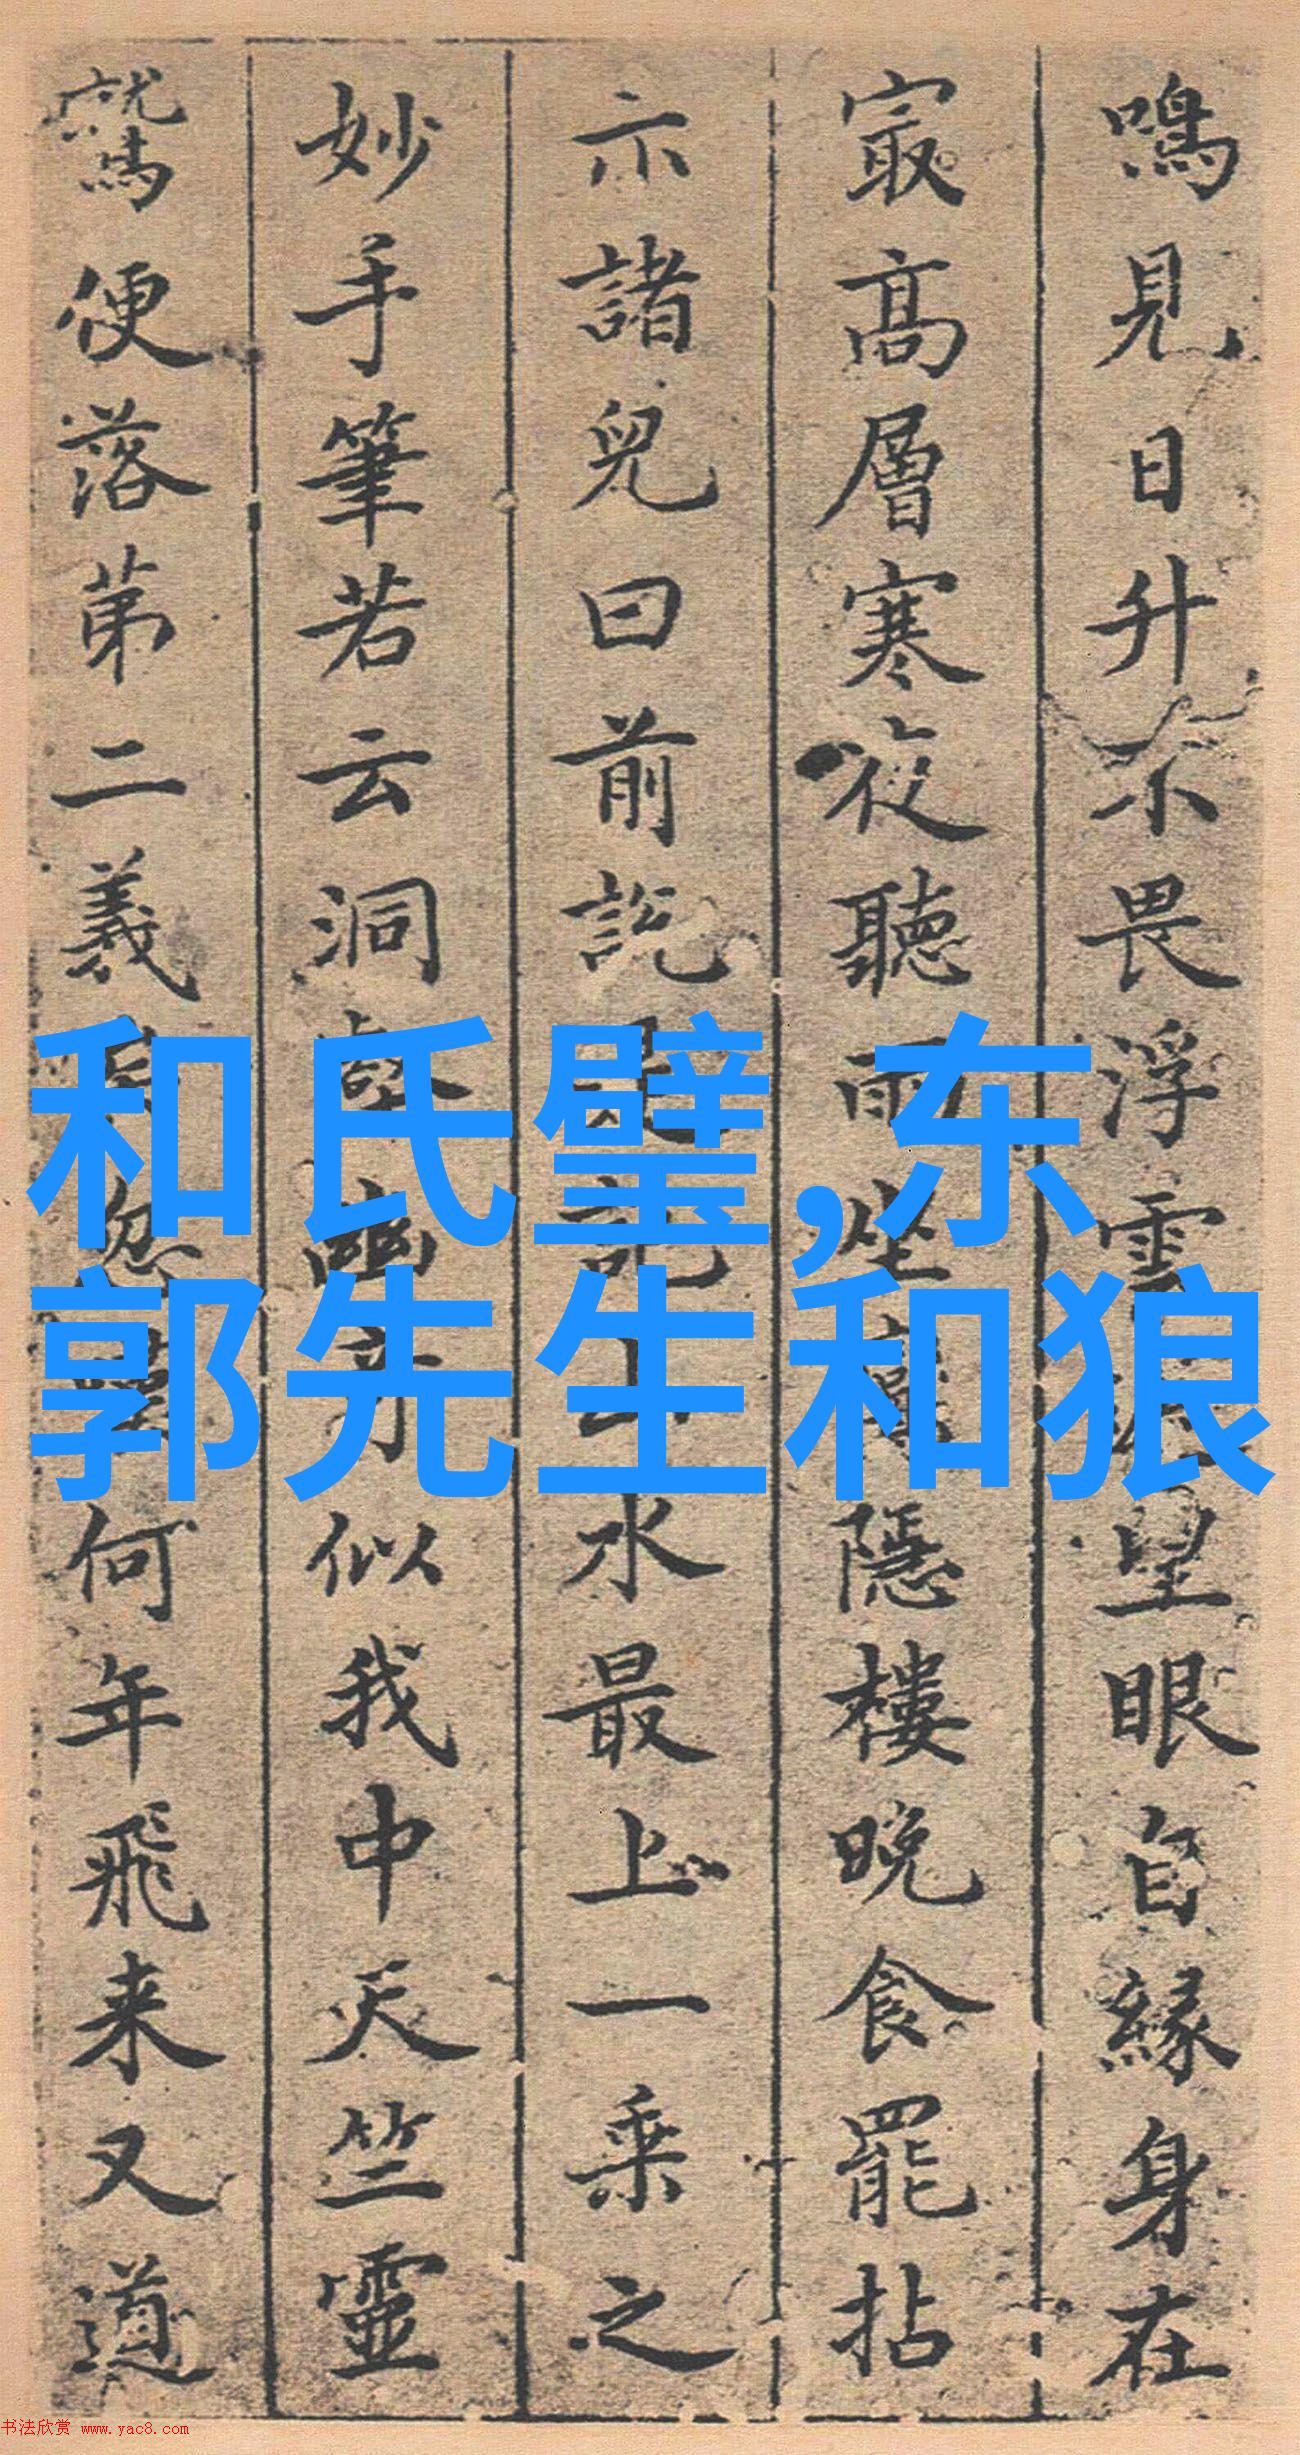 鳴見日升不畏浮雲望眼自緣身在
㝡高層寒夜聽雨坐隱樓晚食罷拈
示諸兒曰前說記山水最上一乘之
妙手筆若云洞壑幽似我中天竺靈
鷲便落第二義忽何年飛来又道
和氏璧,东
郭先生和狼
书法欣赏 www.yac8.com